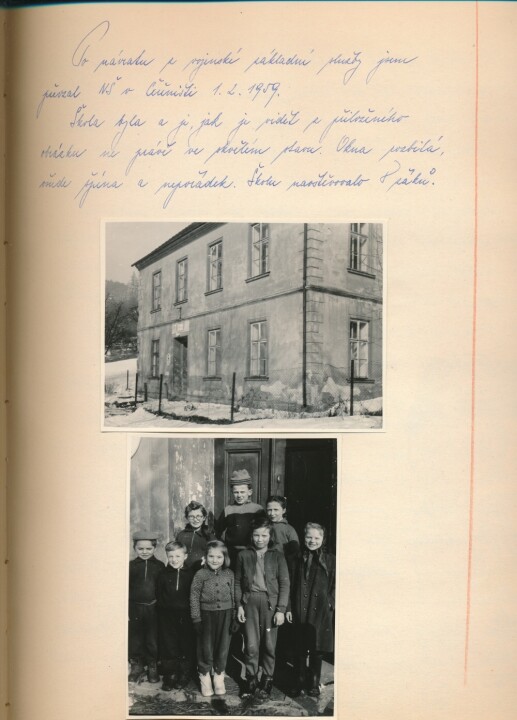 Po návratu z vojenské základní služby jsem
převzal NŠ v 1. 2. 1959.
Škola byla a je, jak je vidět z přiloženého
obrázku ne právě ve skvělém stavu. Okna rozbitá,
všude špína a nepořádek. Školu navštěvovalo 8 žáků.